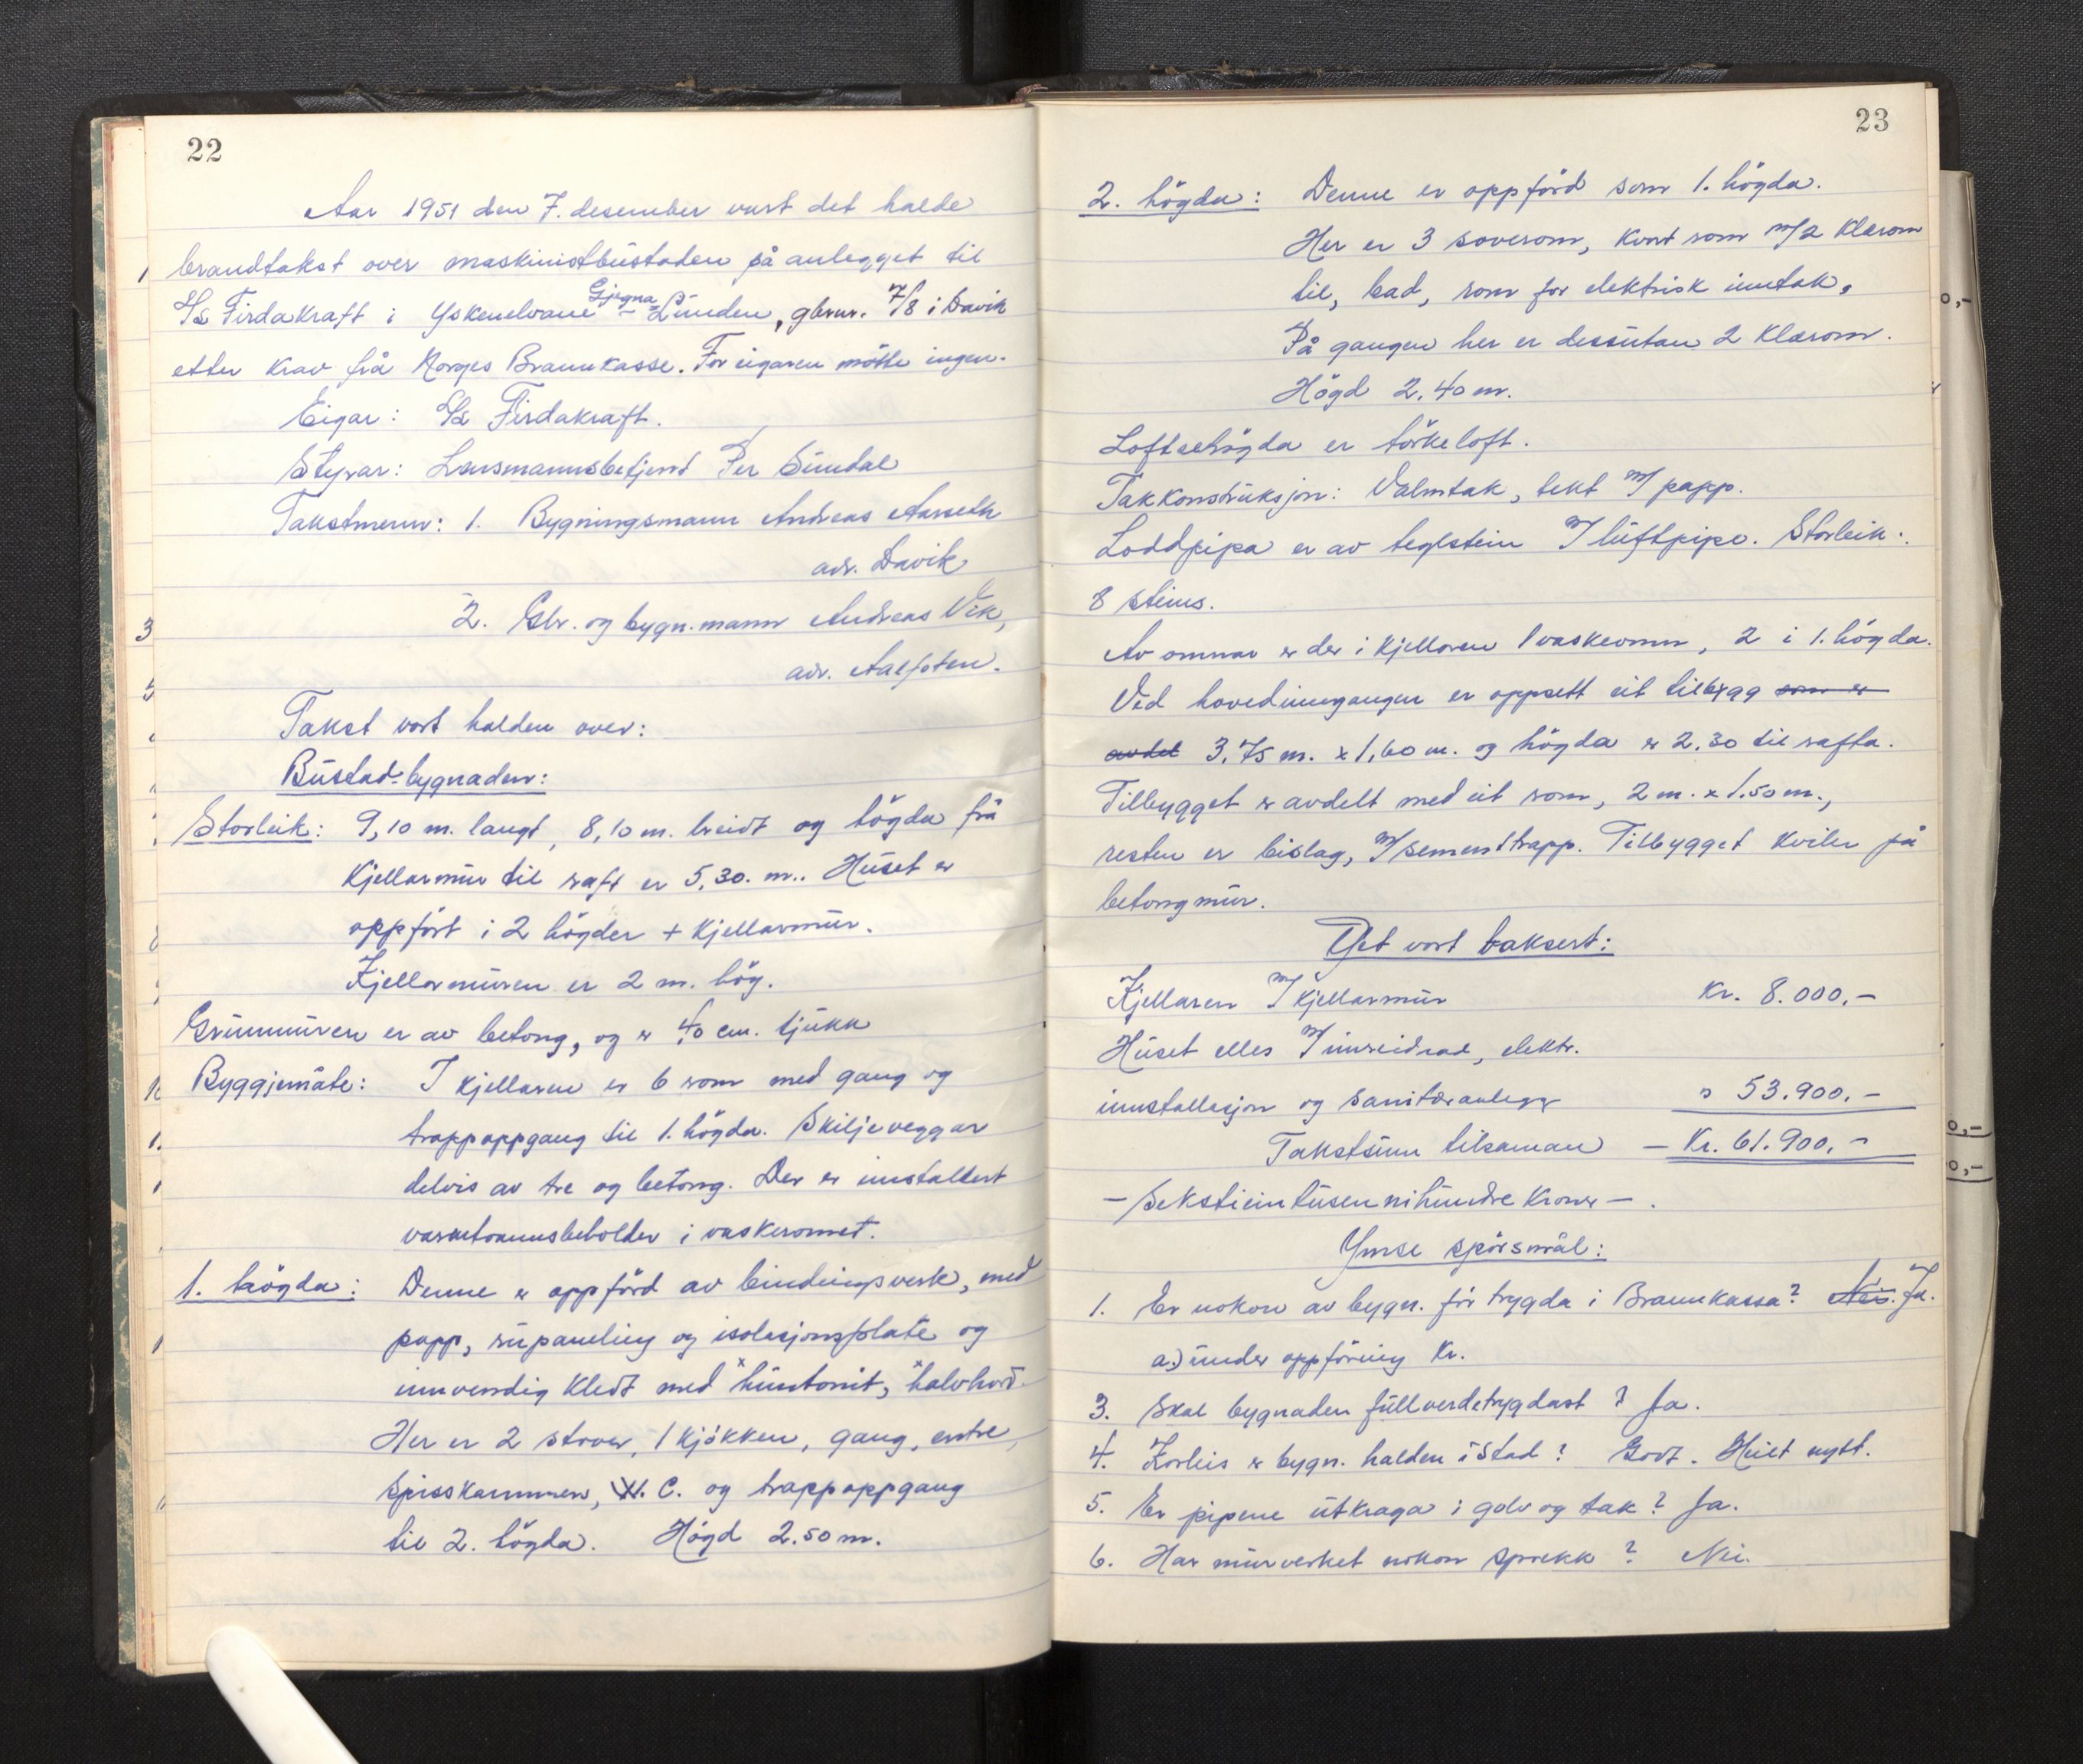 22
Aar 1951 den 7. desember vart det halde
brandtakst over maskinistbustaden på anlegget til
S/L Firdakraft i Yskenelvane Gjegna - Lunden, gbrnr. 7/8 i Davik
etter krav frå Norges Brannkasse. For eigaren møtte ingen.
Eigar: S/L Firdakraft.
Styrar: Lensmannsbetjent Per Sundal
Takstmenn: 1. Bygningsmann Andreas Aarseth
adr. Davik
2. Gbr. og bygn.mann Andreas Vik,
adr. Aalfoten.
Takst vart halden over:
Bustad-bygnaden:
Storleik: 9,10 m. langt, 8,10 m. breidt og högda frå
Kjellarmur til raft er 5,30. m.. Huset er
oppført i 2 högder + Kjellarmur.
Kjellarmuren er 2 m. hög.
Grunnmuren er av betong, og er 40 cm. tjukk
Byggjemåte: I kjellaren er 6 rom med gang og
trappoppgang til 1. högda. Skiljeveggar
delvis av tre og betong. Der er installert
varmtvannsbeholder i vaskeromet.
1. högda: Denne er oppförd av bindingsverk, med
papp, rupaneling og isolasjonsplate og
innvendig kledt med "huntonit", halvhard.
Her er 2 stover, 1 kjökken, gang, entre,
spisskammer, W. C. og trappoppgang
til 2. högda. Högd 2.50 m.
23
2. högda: Denne er oppförd som 1. högda.
Her er 3 soverom, kvart rom m/2 klærom
til, bad, rom for elektrisk inntak.
På gangen her er dessutan 2 klærom.
Högd 2,40 m.
Loftsehögda er törkeloft.
Takkonstruksjon: Valmtak, tekt m/ papp.
Loddpipa er av teglstein m/ luftpipe. Storleik:
8 steins.
Av omnar er der i kjellaren 1 vaskeomn, 2 i 1. högda.
Ved hovedinngangen er oppsett eit tilbygg som er
avdel 3,75 m. x 1,60 m. og högda er 2,30 til rafta.
Tilbygget er avdelt med eit rom, 2 m. x 1.50 m.,
resten er bislag, m/ sementtrapp. Tilbygget kviler på
betongmur.
Det vart taksert:
Kjellaren m/ kjellarmur Kr. 8.000,-
Huset elles m/ innreidnad, elektr.
innstallasjon og sanitæranlegg " 53.900,-
Takstsum tilsaman - Kr. 61.900,-
- Sekstieintusennihundre kroner - .
Ymse spörsmål:
1. Er nokon av bygn. för trygda i Brannkassa? Nei. Ja.
a.) under oppföring Kr.
3. Skal bygnaden fullverdetrygdast? Ja.
4. Korleis er bygn. halden istad? Godt. Heilt nytt.
5. Er pipene utkraga i golv og tak? Ja.
6. Har murverket nokon sprekk? Nei.